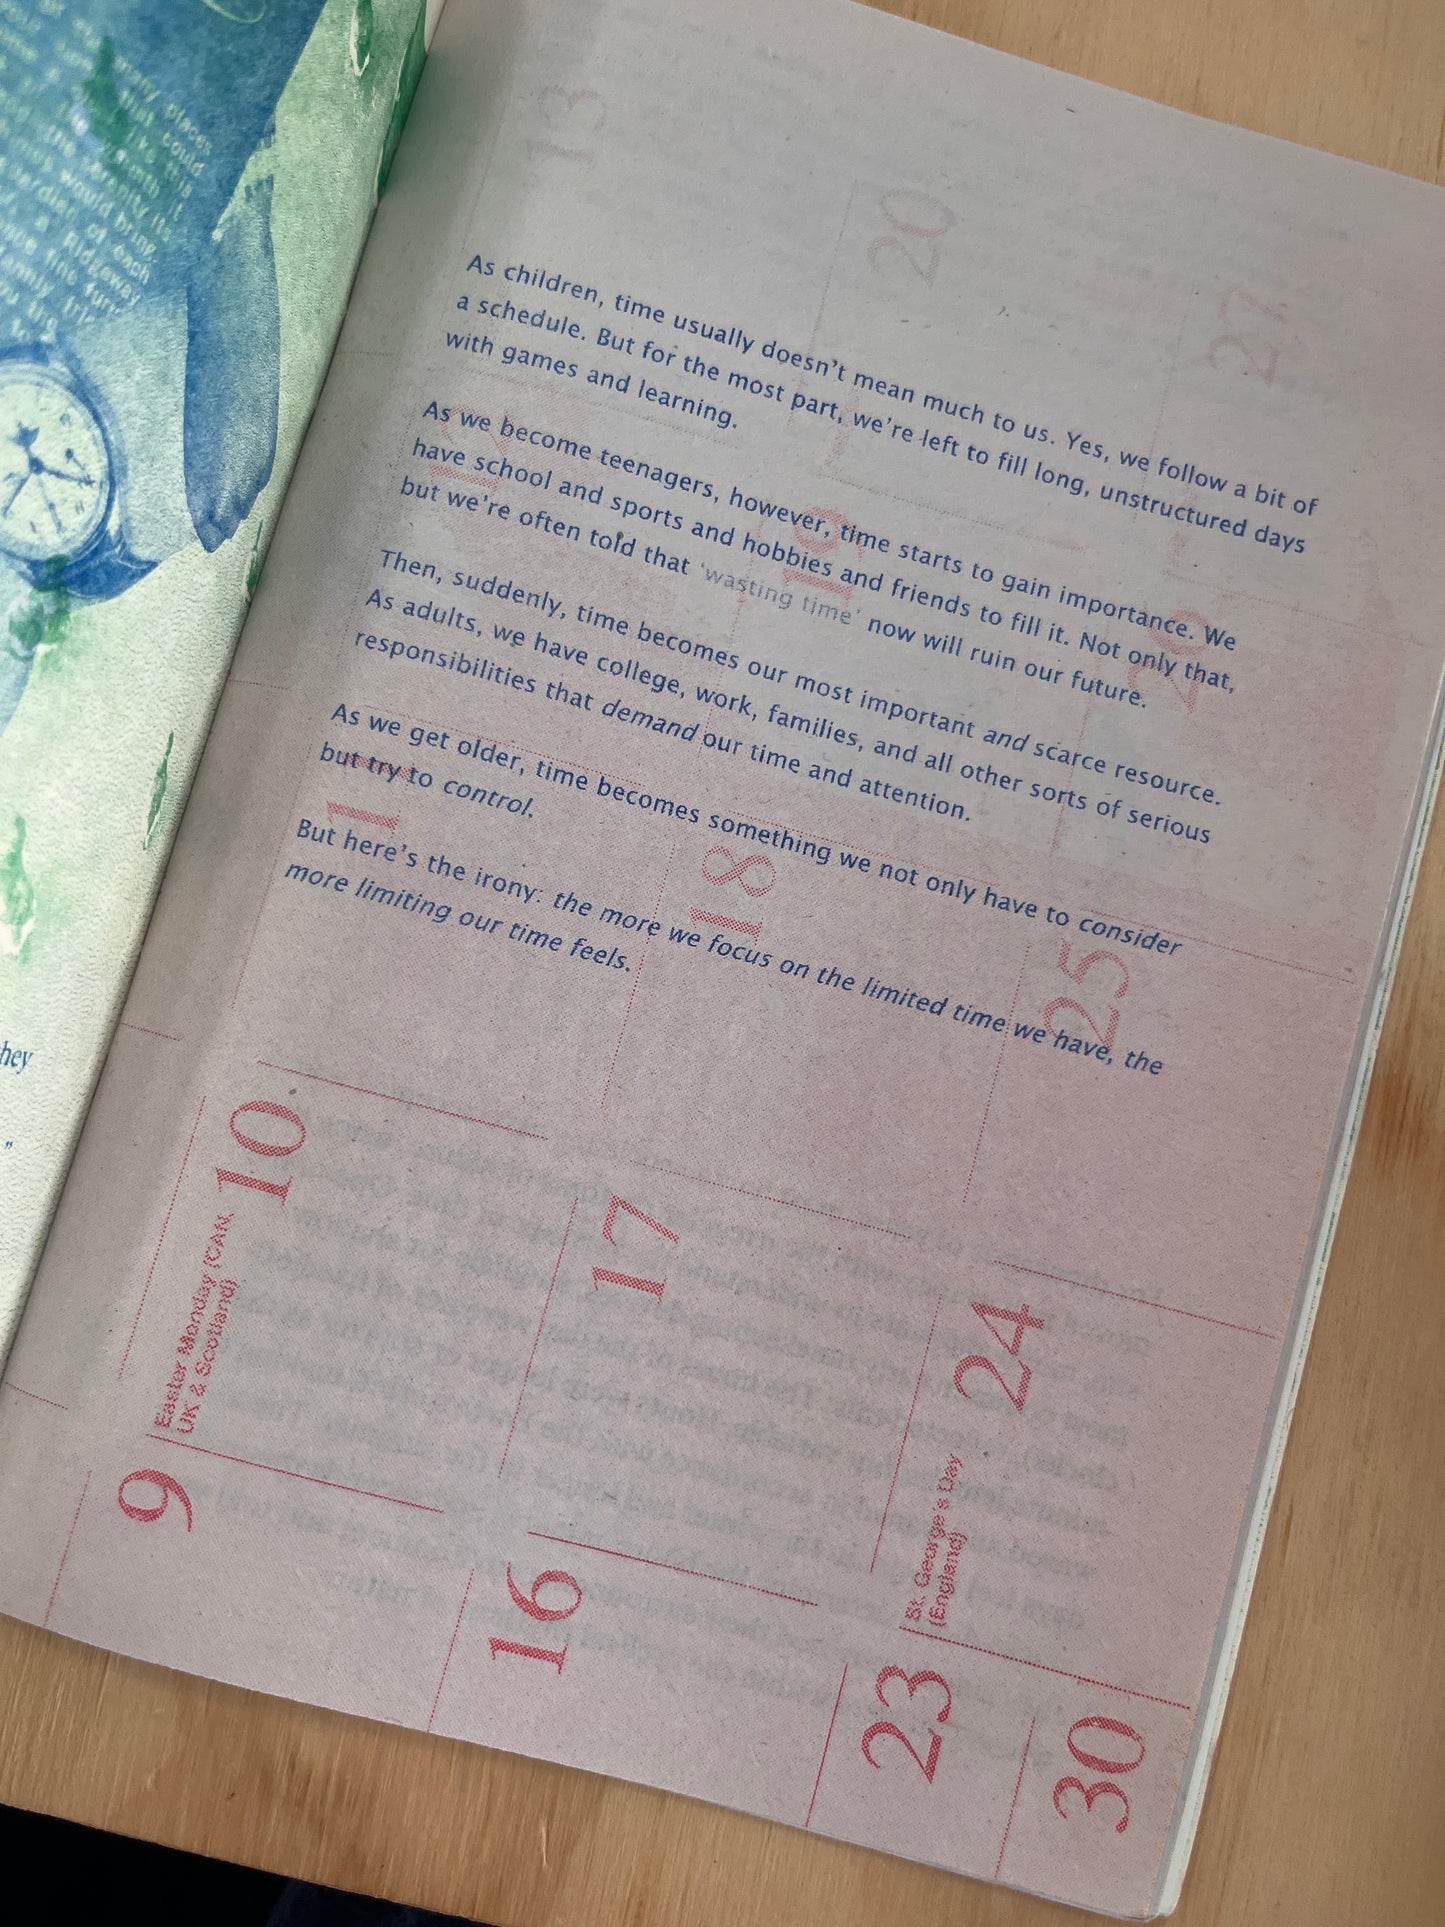 As children, time usually doesn't mean much to us. Yes, we follow a bit of
a schedule. But for the most part, we're left to fill long, unstructured days
with games and learning.
As we become teenagers, however, time starts to gain importance. We
have school and sports and hobbies and friends to fill it. Not only that,
but we're often told that 'wasting time' now will ruin our future.
Then, suddenly, time becomes our most important and scarce resource.
As adults, we have college, work, families, and all other sorts of serious
responsibilities that demand our time and attention.
As we get older, time becomes something we not only have to consider
but try to control.
But here's the irony: the more we focus on the limited time we have, the
more limiting our time feels.
13
20
27
19
26
18
25
10
Easter Monday (CAN,
UK & Scotland)
17
24
St. George's Day
(England)
9
16
23
30
places
could
would bring.
of each
Ridgeway
hey
"